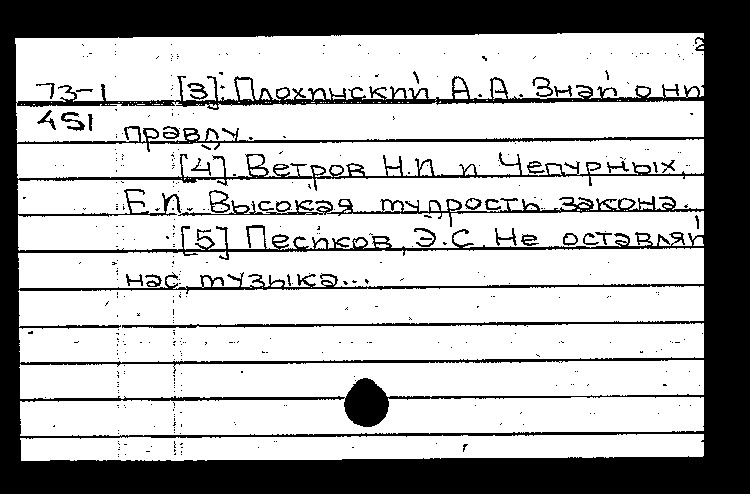 2
73-1 [3]. Плохинский, А.А. Знай о них
451 правду.
[4]. Ветров Н.И. и Чепурных,
Е.И. Высокая мудрость закона.
[5] Песиков, Э.С. Не оставляй
нас, музыка...